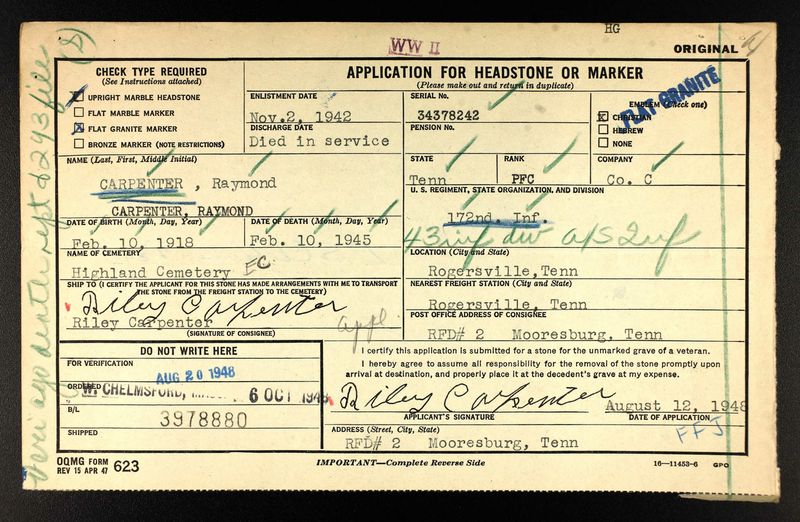 HG
WW II
ORIGINAL
CHECK TYPE REQUIRED
(See Instructions attached)
UPRIGHT MARBLE HEADSTONE
FLAT MARBLE MARKER
X FLAT GRANITE MARKER
BRONZE MARKER (NOTE RESTRICTIONS)
APPLICATION FOR HEADSTONE OR MARKER
(Please make out and return in duplicate)
ENLISTMENT DATE
Nov.2, 1942
DISCHARGE DATE
Died in service
SERIAL No.
34378242
PENSION No.
EMBLEM (Check one)
X CHRISTIAN
HEBREW
NONE
FLAT GRANITE
NAME (Last, First, Middle Initial)
CARPENTER , Raymond
CARPENTER, RAYMOND
STATE
Tenn
RANK
PFC
COMPANY
Co. C
U. S. REGIMENT, STATE ORGANIZATION, AND DIVISION
172nd. Inf.
43 inf div a/S 2nf
DATE OF BIRTH (Month, Day, Year)
Feb. 10, 1918
DATE OF DEATH (Month, Day, Year)
Feb. 10, 1945
NAME OF CEMETERY
Highland Cemetery EC.
LOCATION (City and State)
Rogersville,Tenn
SHIP TO (I CERTIFY THE APPLICANT FOR THIS STONE HAS MADE ARRANGEMENTS WITH ME TO TRANSPORT
THE STONE FROM THE FREIGHT STATION TO THE CEMETERY)
Riley Carpenter
Riley Carpenter
(SIGNATURE OF CONSIGNEE)
appl.
NEAREST FREIGHT STATION (City and State)
Rogersville, Tenn
POST OFFICE ADDRESS OF CONSIGNEE
RFD# 2 Mooresburg, Tenn
DO NOT WRITE HERE
FOR VERIFICATION
AUG 20 1948
ORDERED
W. CHELMSFORD,
6 OCT 1948
B/L
3978880
SHIPPED
I certify this application is submitted for a stone for the unmarked grave of a veteran.
I hereby agree to assume all responsibility for the removal of the stone promptly upon
arrival at destination, and properly place it at the decedent's grave at my expense.
Riley Carpenter
August 12, 1948
APPLICANT'S SIGNATURE
DATE OF APPLICATION
FFJ
ADDRESS (Street, City, State)
RFD# 2 Mooresburg, Tenn
OQMG FORM
REV 15 APR 47 623
IMPORTANT—Complete Reverse Side
16—11453-6 GPO